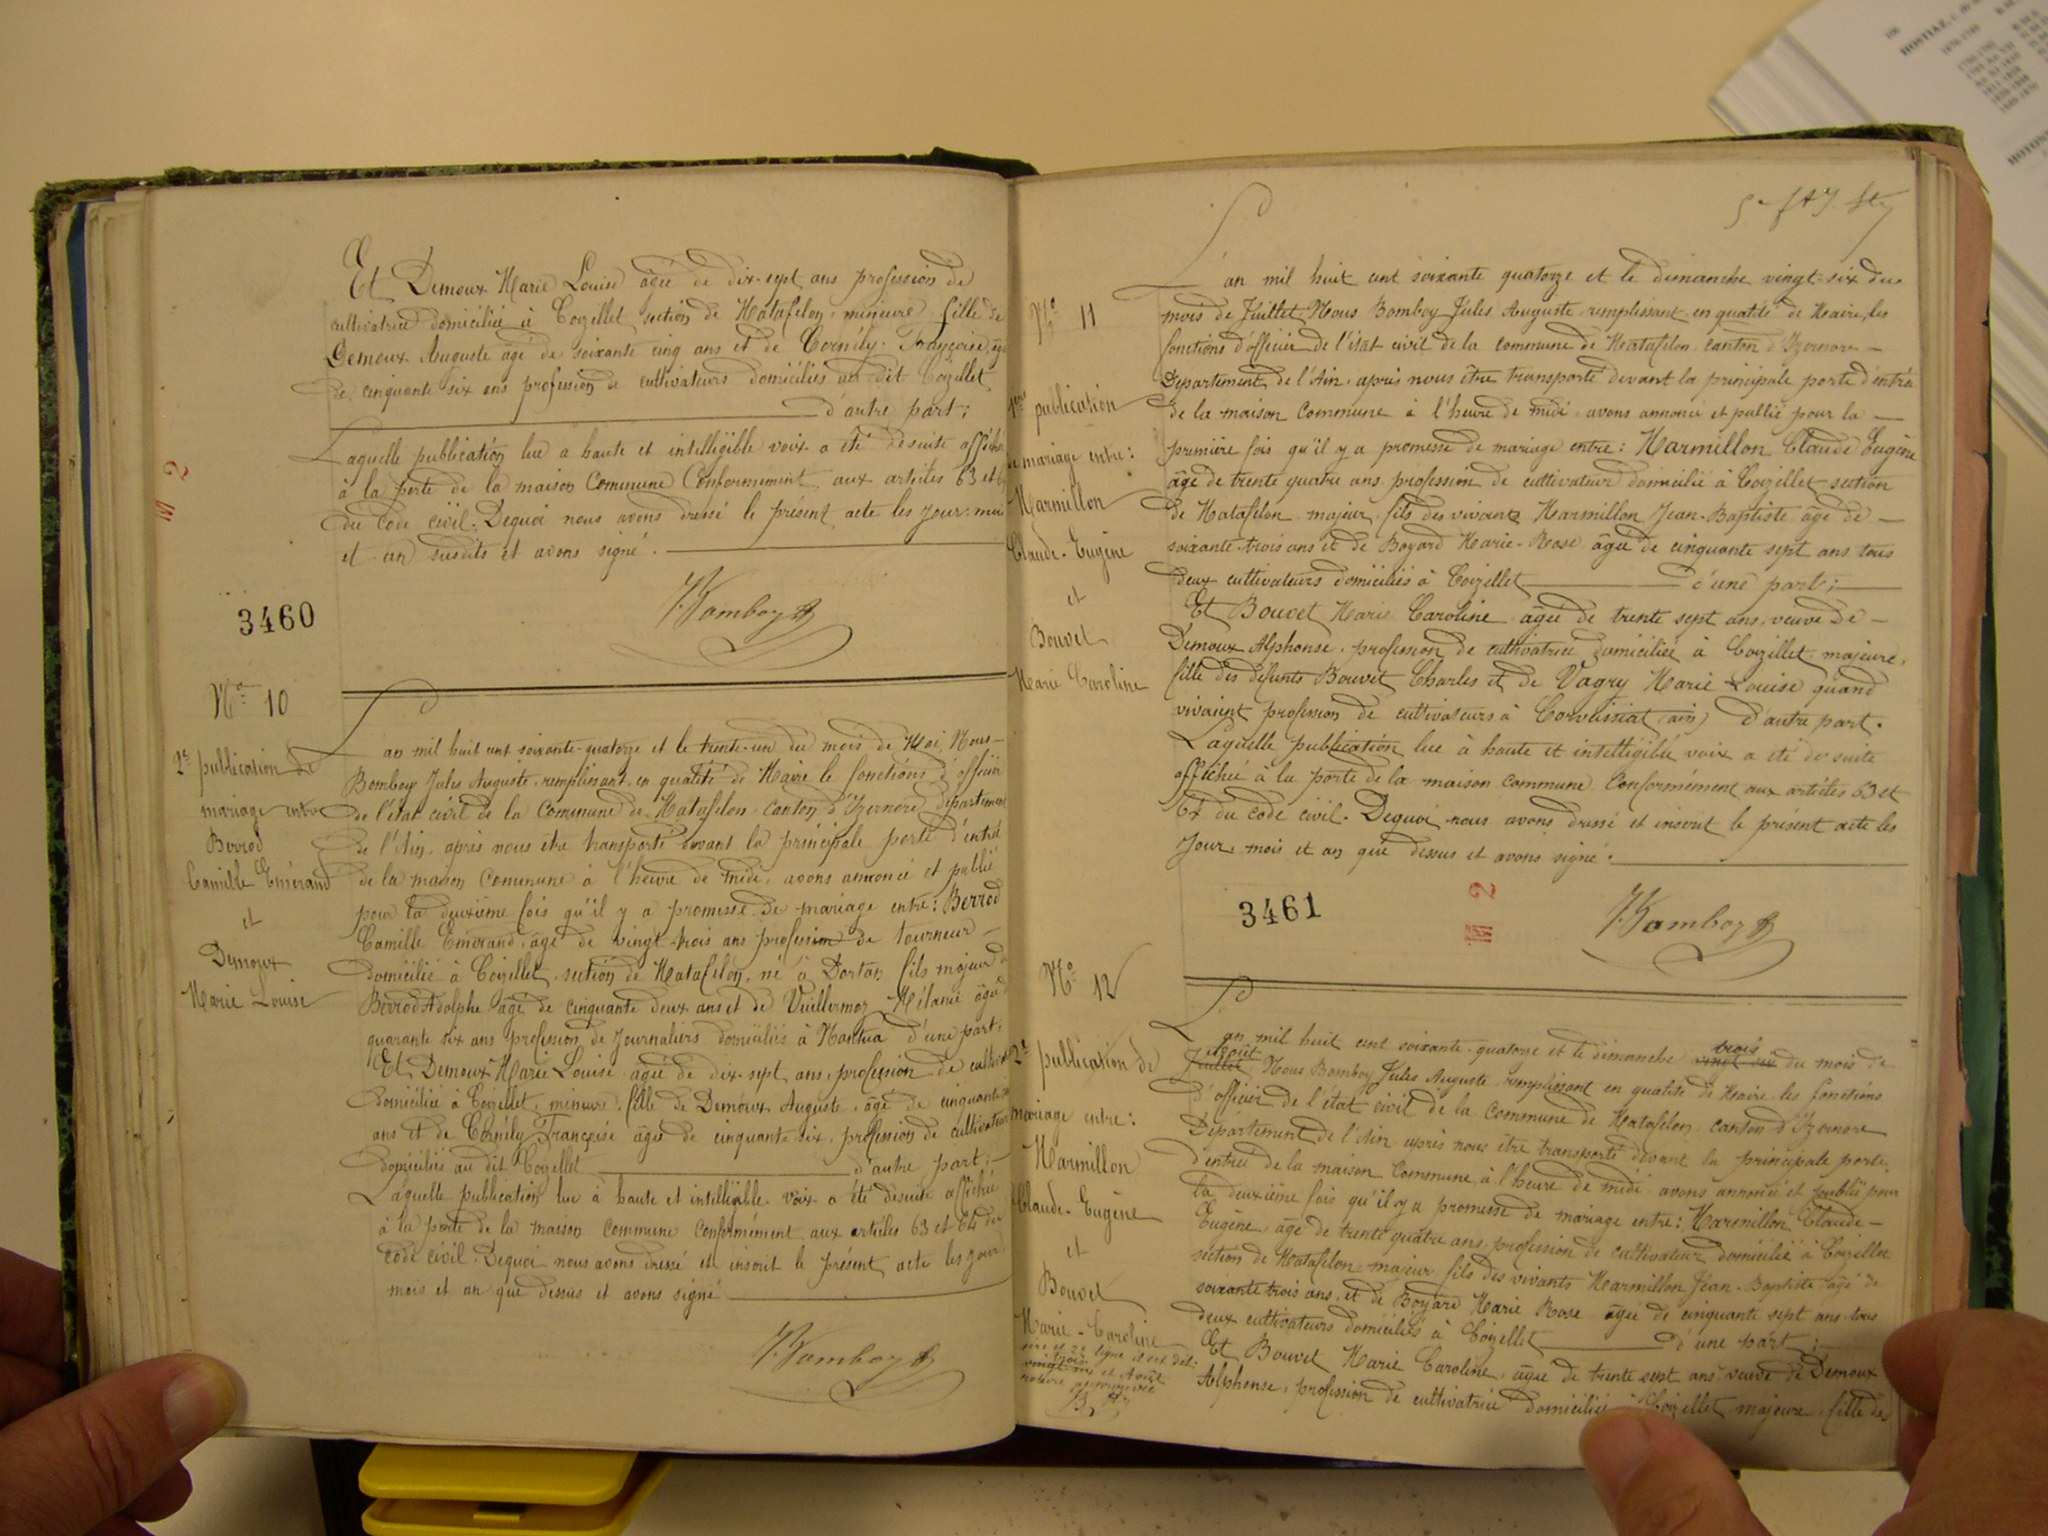 Et Demoux Marie Louise âgée de dix-sept ans profession de
cultivatrice domiciliée à Coizellet section de Matafelon, mineure fille de
Demoux Auguste âgé de soixante cinq ans et de Cornély Françoise âgée
de cinquante six ans profession de cultivateurs domiciliés au dit Coizellet
d'autre part;
Laquelle publication lue a haute et intelligible voix a été desuite affichée
à la porte de la maison Commune Conformement aux articles 63 et 64
du Code civil. Dequoi nous avons dressé le présent acte les jour, mois
et an susdits et avons signé.
M 2
3460
J. Bomboy
No 10
2e publication de
mariage entre
Berrod
Camille Emérand
et
Demoux
Marie Louise
L'an mil huit cent soixante-quatorze et le trente-un du mois de Mai, Nous
Bomboy Jules Auguste, remplissant en qualité de Maire le fonctions d'officier
de l'état civil de la Commune de Matafelon, canton d'Izernore, département
de l'Ain, après nous être transporté devant la principale porte d'entrée
de la maison Commune à l'heure de midi, avons annoncé et publié
pour la deuxième fois qu'il y a promesse de mariage entre: Berrod
Camille Emérand, âgé de vingt-trois ans profession de tourneur
domicilié à Coizellet, section de Matafelon, né à Dortan fils majeur de
Berrod Adolphe âgé de cinquante deux ans et de Vuillermoz Mélanie âgée de
quarante six ans profession de journaliers domiciliés à Nantua d'une part;
Et Demoux Marie Louise âgée de dix-sept ans, profession de cultivatrice
domiciliée à Coizellet, mineure, fille de Demoux Auguste, âgé de cinquante
ans et de Cornély Françoise âgée de cinquante-six, profession de cultivateurs
domiciliés au dit Coizellet d'autre part;
Laquelle publication lue à haute et intelligible voix a été desuite affichée
à la porte de la maison commune conformément aux articles 63 et 64 du
Code civil. Dequoi nous avons dressé et inscrit le présent acte les jour
mois et an que dessus et avons signé
J. Bomboy
No 11
1ère publication
de mariage entre:
Marmillon
Claude-Eugène
et
Bouvet
Marie Caroline
L'an mil huit cent soixante quatorze et le dimanche vingt-six du
mois de Juillet, Nous Bomboy Jules Auguste, remplissant en qualité de Maire, les
fonctions d'officier de l'état civil de la commune de Matafelon canton d'Izernore
Département de l'Ain, après nous être transporté devant la principale porte d'entrée
de la maison Commune à l'heure de midi, avons annoncé et publié pour la
première fois qu'il y a promesse de mariage entre: Marmillon Claude Eugène
âgé de trente quatre ans, profession de cultivateur domicilié à Coizellet section
de Matafelon, majeur, fils des vivants Marmillon Jean-Baptiste âgé de
soixante-trois ans et de Boyard Marie-Rose âgée de cinquante sept ans tous
deux cultivateurs domiciliés à Coizellet d'une part;
Et Bouvet Marie Caroline âgée de trente sept ans, veuve de
Demoux Alphonse, profession de cultivatrice domiciliée à Coizellet, majeure,
fille des défunts Bouvet Charles et de Vagry Marie Louise quand
vivaient profession de cultivateurs à Corveissiat (ain) d'autre part.
Laquelle publication lue à haute et intelligible voix a été de suite
affichée à la porte de la maison commune Conformément aux articles 63 et
64 du code civil. Dequoi nous avons dressé et inscrit le présent acte les
jour, mois et an que dessus et avons signé.
3461
M 2
J. Bomboy
No 12
2e publication de
mariage entre:
Marmillon
Claude-Eugène
et
Bouvet
Marie-Caroline
L'an mil huit cent soixante-quatorze et le dimanche vingt six trois du mois de
Juillet Août Nous Bomboy Jules Auguste remplissant en qualité de Maire les fonctions
d'officier de l'état civil de la Commune de Matafelon canton d'Izernore
Département de l'Ain après nous être transporté devant la principale porte
d'entrée de la maison Commune, à l'heure de midi avons annoncé et publié pour
la deuxième fois qu'il y a promesse de mariage entre: Marmillon Claude-
Eugène, âgé de trente quatre ans, profession de cultivateur domicilié à Coizellet
section de Matafelon majeur fils des vivants Marmillon Jean-Baptiste âgé de
soixante trois ans, et de Boyard Marie Rose âgée de cinquante sept ans tous
deux cultivateurs domiciliés à Coizellet d'une part;
Et Bouvet Marie Caroline, âgée de trente sept ans veuve de Demoux
Alphonse, profession de cultivatrice domiciliée à Coizellet majeure, fille des